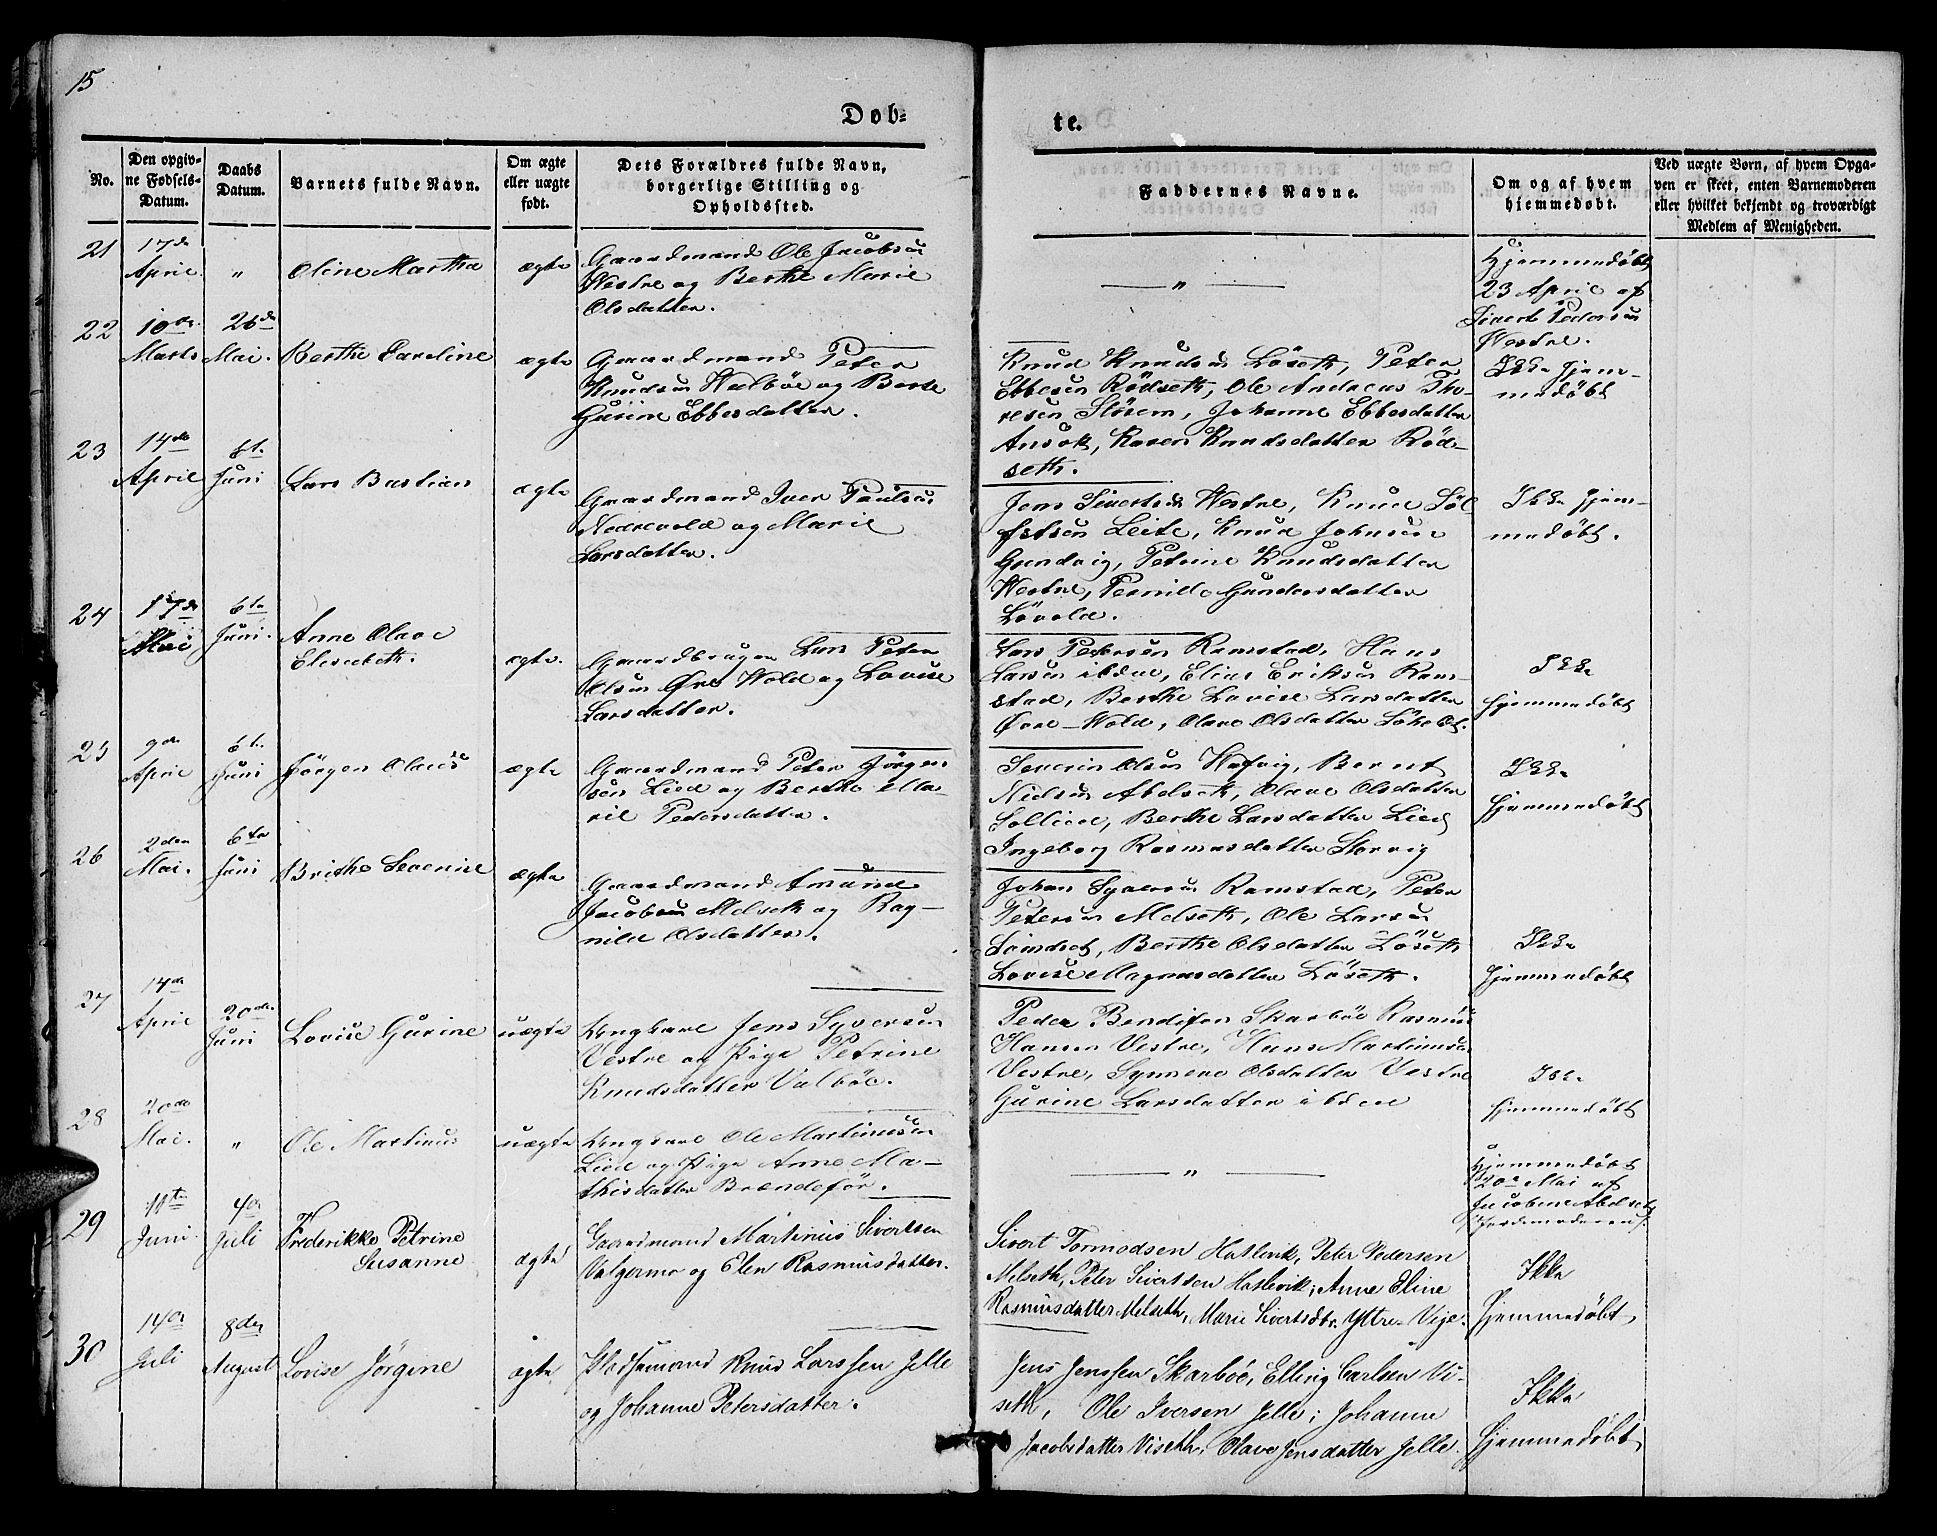 15
Døb-
te.
No.
Den opgiv-
ne Fødsels-
Datum.
Daabs
Datum.
Barnets fulde Navn.
Om ægte
eller uægte
født.
Dets Forældres fulde Navn,
borgerlige Stilling og
Opholdssted.
Faddernes Navne.
Om og af hvem
hjemmedøbt.
Ved uægte Børn, af hvem Opga-
ven er skeet, enten Barnemoderen
eller hvilket bekjendt og troværdigt
Medlem af Menigheden.
21
17de
April
"
Oline Marthe
ægte
Gaardmand Ole Jacobsen
Vestre og Berthe Marie
Olsdatter.
"
Hjemmedøbt
23 April af
Sivert Pedersen
Vestre.
22
10de
Marts
26de
Mai.
Berthe Caroline
ægte
Gaardmand Peter
Knudsen Walbøe og Berte
Gurine Ebbesdatter.
Knud Knudsen Løseth, Peter
Ebbesen Rødseth, Ole Andreas Tho-
resen Störem, Johanne Ebbesdatter
Ansok, Karen Knudsdatter Rød-
seth.
Ikke hjem-
medøbt
23
14de
April
6te
Juni
Lars Bastian
ægte
Gaardmand Iver Paulsen
Nedrevold og Marie
Larsdatter.
Jens Sivertsen Westre, Knud Søl-
festsen Leite, Knud Johnsen
Grendvig, Petrine Knudsdatter
Westre, Pernille Gundersdatter
Løvold.
Ikke hjem-
medøbt.
24
17de
Mai
6te
Juni.
Anne Olave
Elisabeth.
ægte.
Gaardbruger Lars Peter
Olsen Øvre Wold og Lovise
Larsdatter.
Lars Pedersen Ramstad, Hans
Larsen ibdne, Elias Eriksen Ram-
stad, Berthe Lovise Larsdatter
Øvre-Wold, Olave Olsdatter
Ikke
hjemmedøbt
25
9de
April
6te
Juni
Jørgen Olaus
ægte
Gaardmand Peter Jørgen-
sen Lied og Berthe Ma-
rie Pedersdatter.
Severin Olsen Hofvig, Bernt
Nielsen Abelseth, Olave Olsdatter
Sollied, Berthe Larsdatter Lied
Ingeborg Rasmusdatter Storvig
Ikke
hjemmedøbt
26
2den
Mai.
6te
Juni
Brithe Severine
ægte
Gaardmand Amund
Jacobsen Melseth og Rag-
nild Olsdatter.
Johan Syversen Ramstad, Peter
Petersen Melseth, Ole Larsen
Lindset, Berthe Olsdatter Løseth
Lovise Magnusdatter Løseth.
Ikke
hjemmedøbt
27
14de
April
20de
Juni
Lovise Gurine
uægte
Ungkarl Jens Syversen
Vestre og Pige Petrine
Knudsdatter Valbøe.
Peder Bendixsen Skarbøe Rasmus
Hansen Vestre, Hans Martinusen
Vestre, Symene Olsdatter Vestre
Gurine Larsdatter ibdne
Ikke
hjemmedøbt
28
20de
Mai.
"
Ole Martinus
uægte
Ungkarl Ole Martinusen
Lied og Pige Anne Ma-
thisdatter Brændefør.
"
Hjemmedøbt
20de Mai af
Jacobine Abelset
(Jordemoderen).
29
11te
Juni
4de
Juli
Frederikke Petrine
Susanne
ægte
Gaardmand Martinus Sivertsen
Valgermo og Elen Rasmusdatter.
Sivert Tormodsen Hatlevik, Peter Pedersen
Melseth, Peter Sivertsen Hatlevik; Anne Eline
Rasmusdatter Melseth, Marie Sivertsdtr. Yttre-Vije.
Ikke
Hjemmedøbt
30
14de
Juli
8de
August
Lovise Jørgine
ægte
Pladsemand Knud Larssen Jelle
og Johanne Petersdatter.
Jens Jenssen Skarbøe, Elling Carlsen Vi-
seth, Ole Iversen Jelle; Johanne
Jacobsdatter Viseth, Olave Jensdatter Jelle.
Ikke
Hjemmedøbt